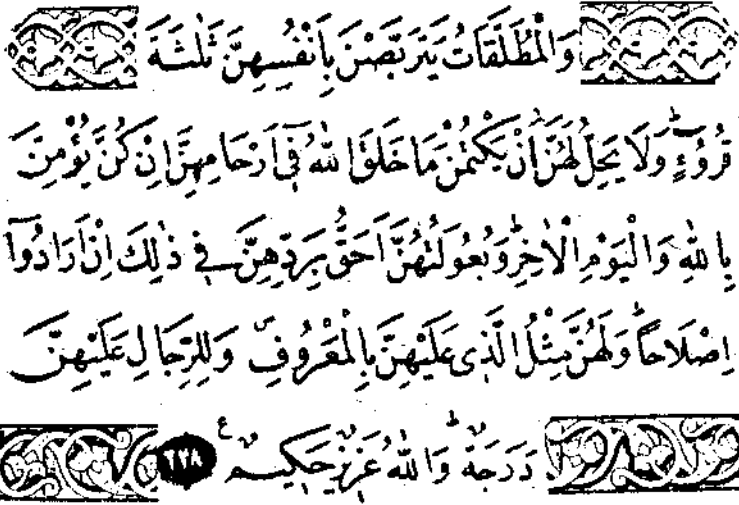 وَالْمُطَلَّقَاتُ يَتَرَبَّصْنَ بِاَنْفُسِهِنَّ ثَلٰثَةَ
قُرُٓوءٍؕ وَلَا يَحِلُّ لَهُنَّ اَنْ يَكْتُمْنَ مَا خَلَقَ اللّٰهُ ف۪ٓي اَرْحَامِهِنَّ اِنْ كُنَّ يُؤْمِنَّ
بِاللّٰهِ وَالْيَوْمِ الْاٰخِرِؕ وَبُعُولَتُهُنَّ اَحَقُّ بِرَدِّهِنَّ ف۪ي ذٰلِكَ اِنْ اَرَادُٓوا
اِصْلَاحاًؕ وَلَهُنَّ مِثْلُ الَّذ۪ي عَلَيْهِنَّ بِالْمَعْرُوفِۖ وَلِلرِّجَالِ عَلَيْهِنَّ
دَرَجَةٌؕ وَاللّٰهُ عَز۪يزٌ حَك۪يمٌࣖ ﴿٢٢٨﴾